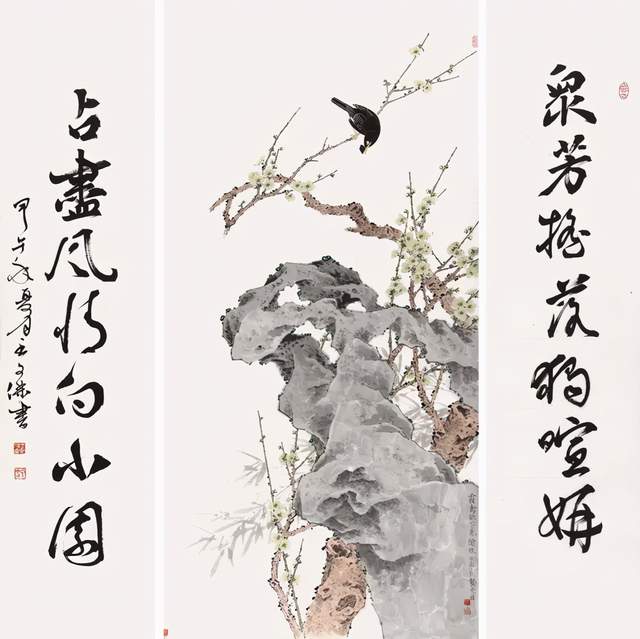 眾芳搖落獨暄妍
占盡風情向小園
甲午年夏月書